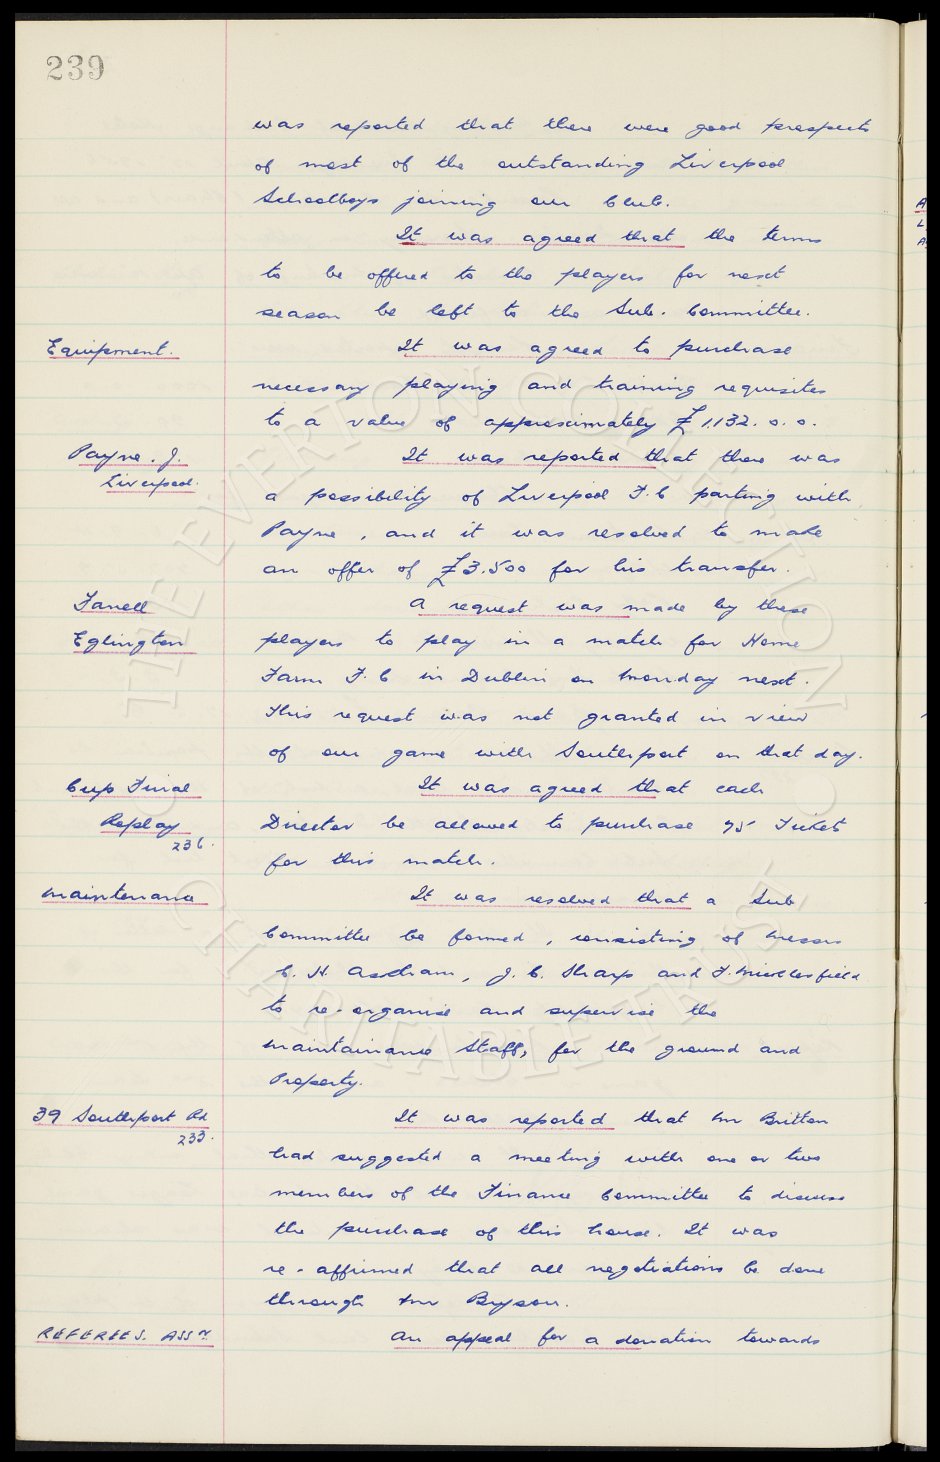 239
was reported that there were good prospects
of most of the outstanding Liverpool
Schoolboys joining our Club.
It was agreed that the terms
to be offered to the players for next
season be left to the Sub. Committee.
Equipment.
It was agreed to purchase
necessary playing and training requisites
to a value of approximately £1132. 0. 0.
Payne. J.
Liverpool.
It was reported that there was
a possibility of Liverpool F.C parting with
Payne, and it was resolved to make
an offer of £3.500 for his transfer.
Farrell
Eglington
A request was made by these
players to play in a match for Home
Farm F.C in Dublin on Monday next.
This request was not granted in view
of our game with Southport on that day.
Cup Final
Replay
236.
It was agreed that each
Director be allowed to purchase 75 Tickets
for this match.
Maintenance
It was resolved that a Sub
Committee be formed, consisting of Messrs
C. H. Askham, J. C. Sharp and F. Micklesfield
to re-organise and supervise the
Maintainance Staff, for the ground and
Property.
39 Southport Rd
233.
It was reported that Mr Britton
had suggested a meeting with one or two
members of the Finance Committee to discuss
the purchase of this house. It was
re-affirmed that all negotiations be done
through Mr Bryson.
REFEREES. ASSN.
An appeal for a donation towards
THE EVERTON COLLECTION
CHARITABLE TRUST